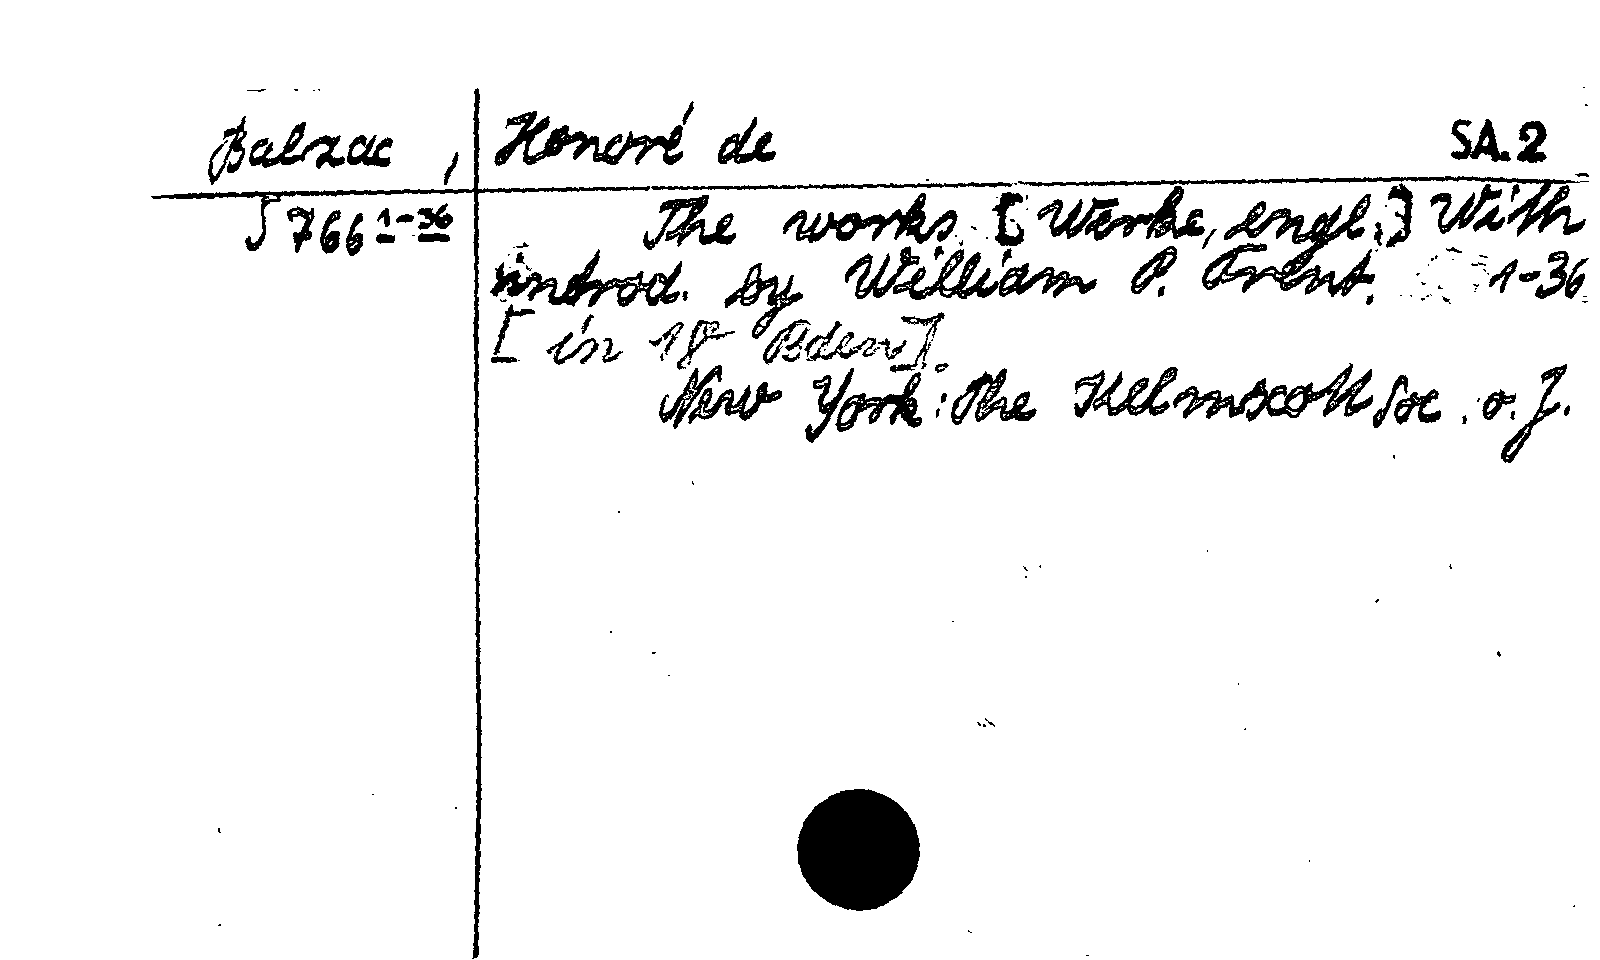 Balzac, Honoré de SA.2
S 766 1-36 The works [Werke, engl.] With
introd. by William P. Trent. 1-36
[in 18 Bden].
New York: The Kelmscott Soc. o.J.